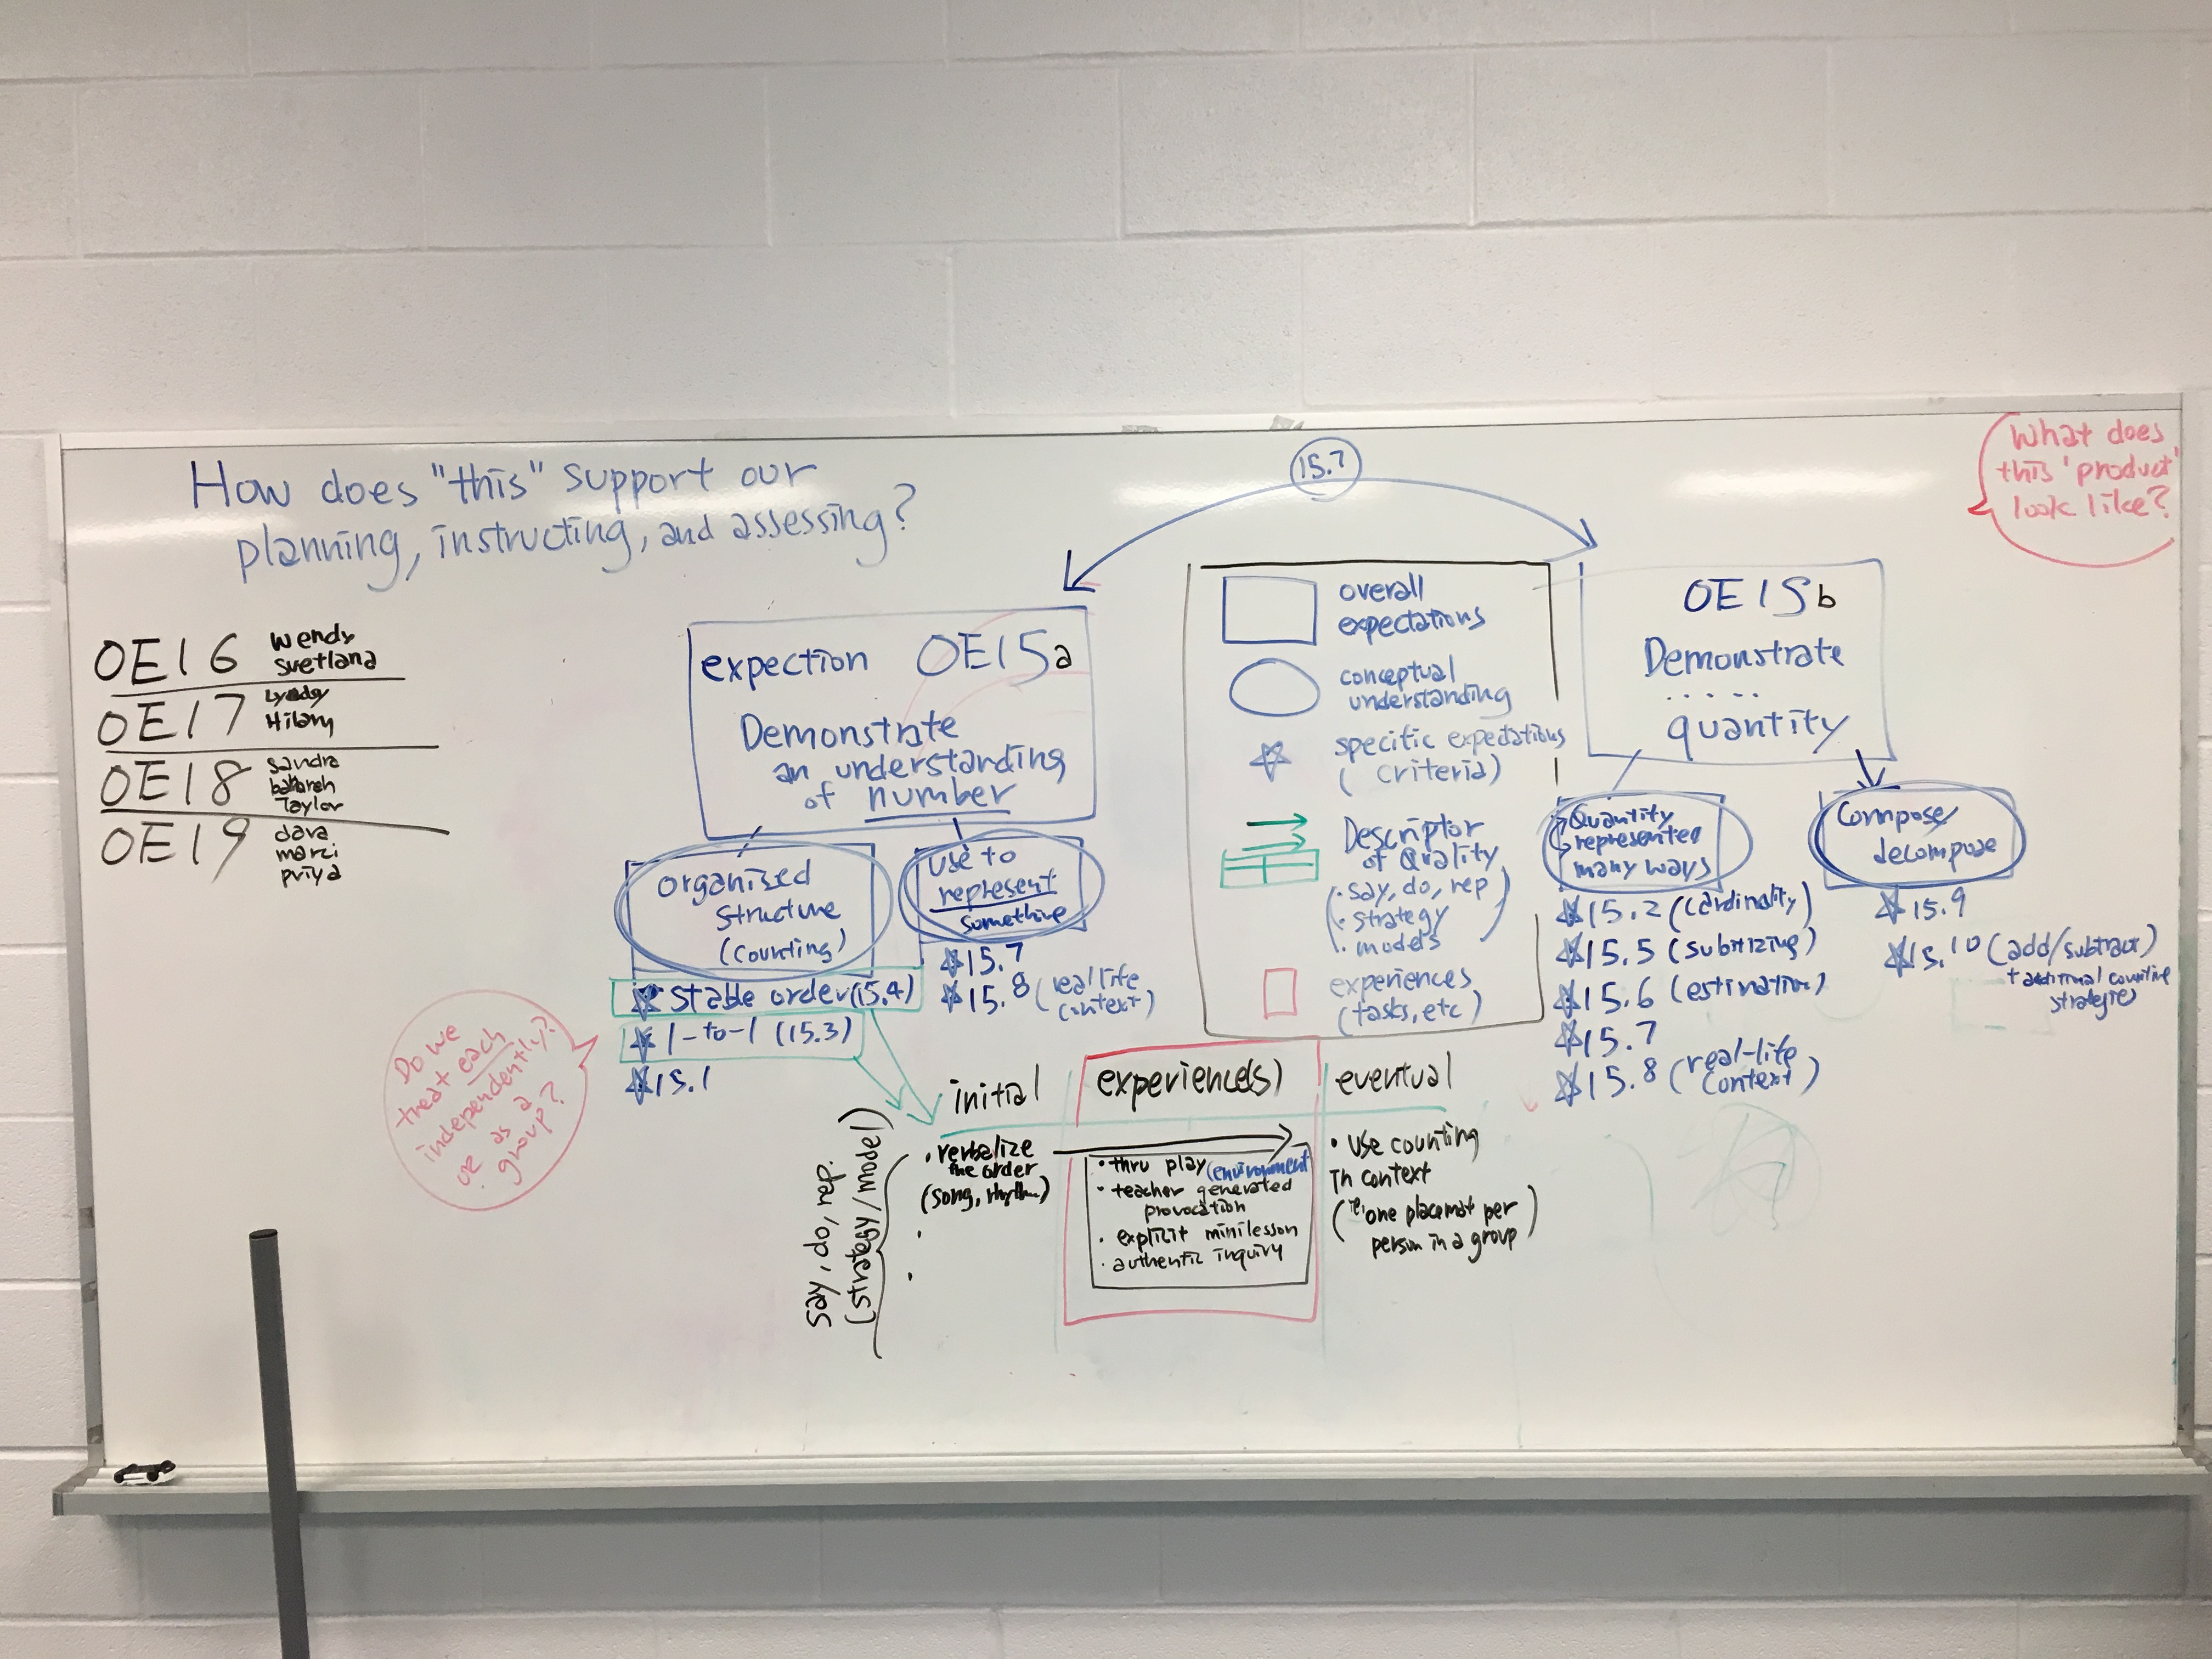 How does "this" support our
planning, instructing, and assessing?
What does
this 'product'
look like?
15.7
OE16
Wendy
Svetlana
OE17
Hilary
OE18
Sandra
Taylor
OE19
dava
marci
priya
expection OE15a
Demonstrate
an understanding
of number
organized
structure
(counting)
stable order (15.4)
1-to-1 (15.3)
15.1
use to
represent
something
15.7
15.8 (real life
context)
Do we
treat each
independently?
or as a
group?
overall
expectations
conceptual
understanding
specific expectations
(criteria)
Descriptor
of Quality
(• say, do, rep
• strategy
• models)
experiences
(tasks, etc)
OE15b
Demonstrate
.....
quantity
Quantity
represented
many ways
15.2 (cardinality)
15.5 (subitizing)
15.6 (estimation)
15.7
15.8 (real-life
context)
Compose/
decompose
15.9
15.10 (add/subtract)
+ additional counting
strategies
initial
experience(s)
eventual
say, do, rep.
(strategy/model)
• verbalize
the order
(song, rhythm)
• thru play (environment
• teacher generated
provocation
• explicit minilesson
• authentic inquiry
• Use counting
in context
(ie, one placemat per
person in a group)